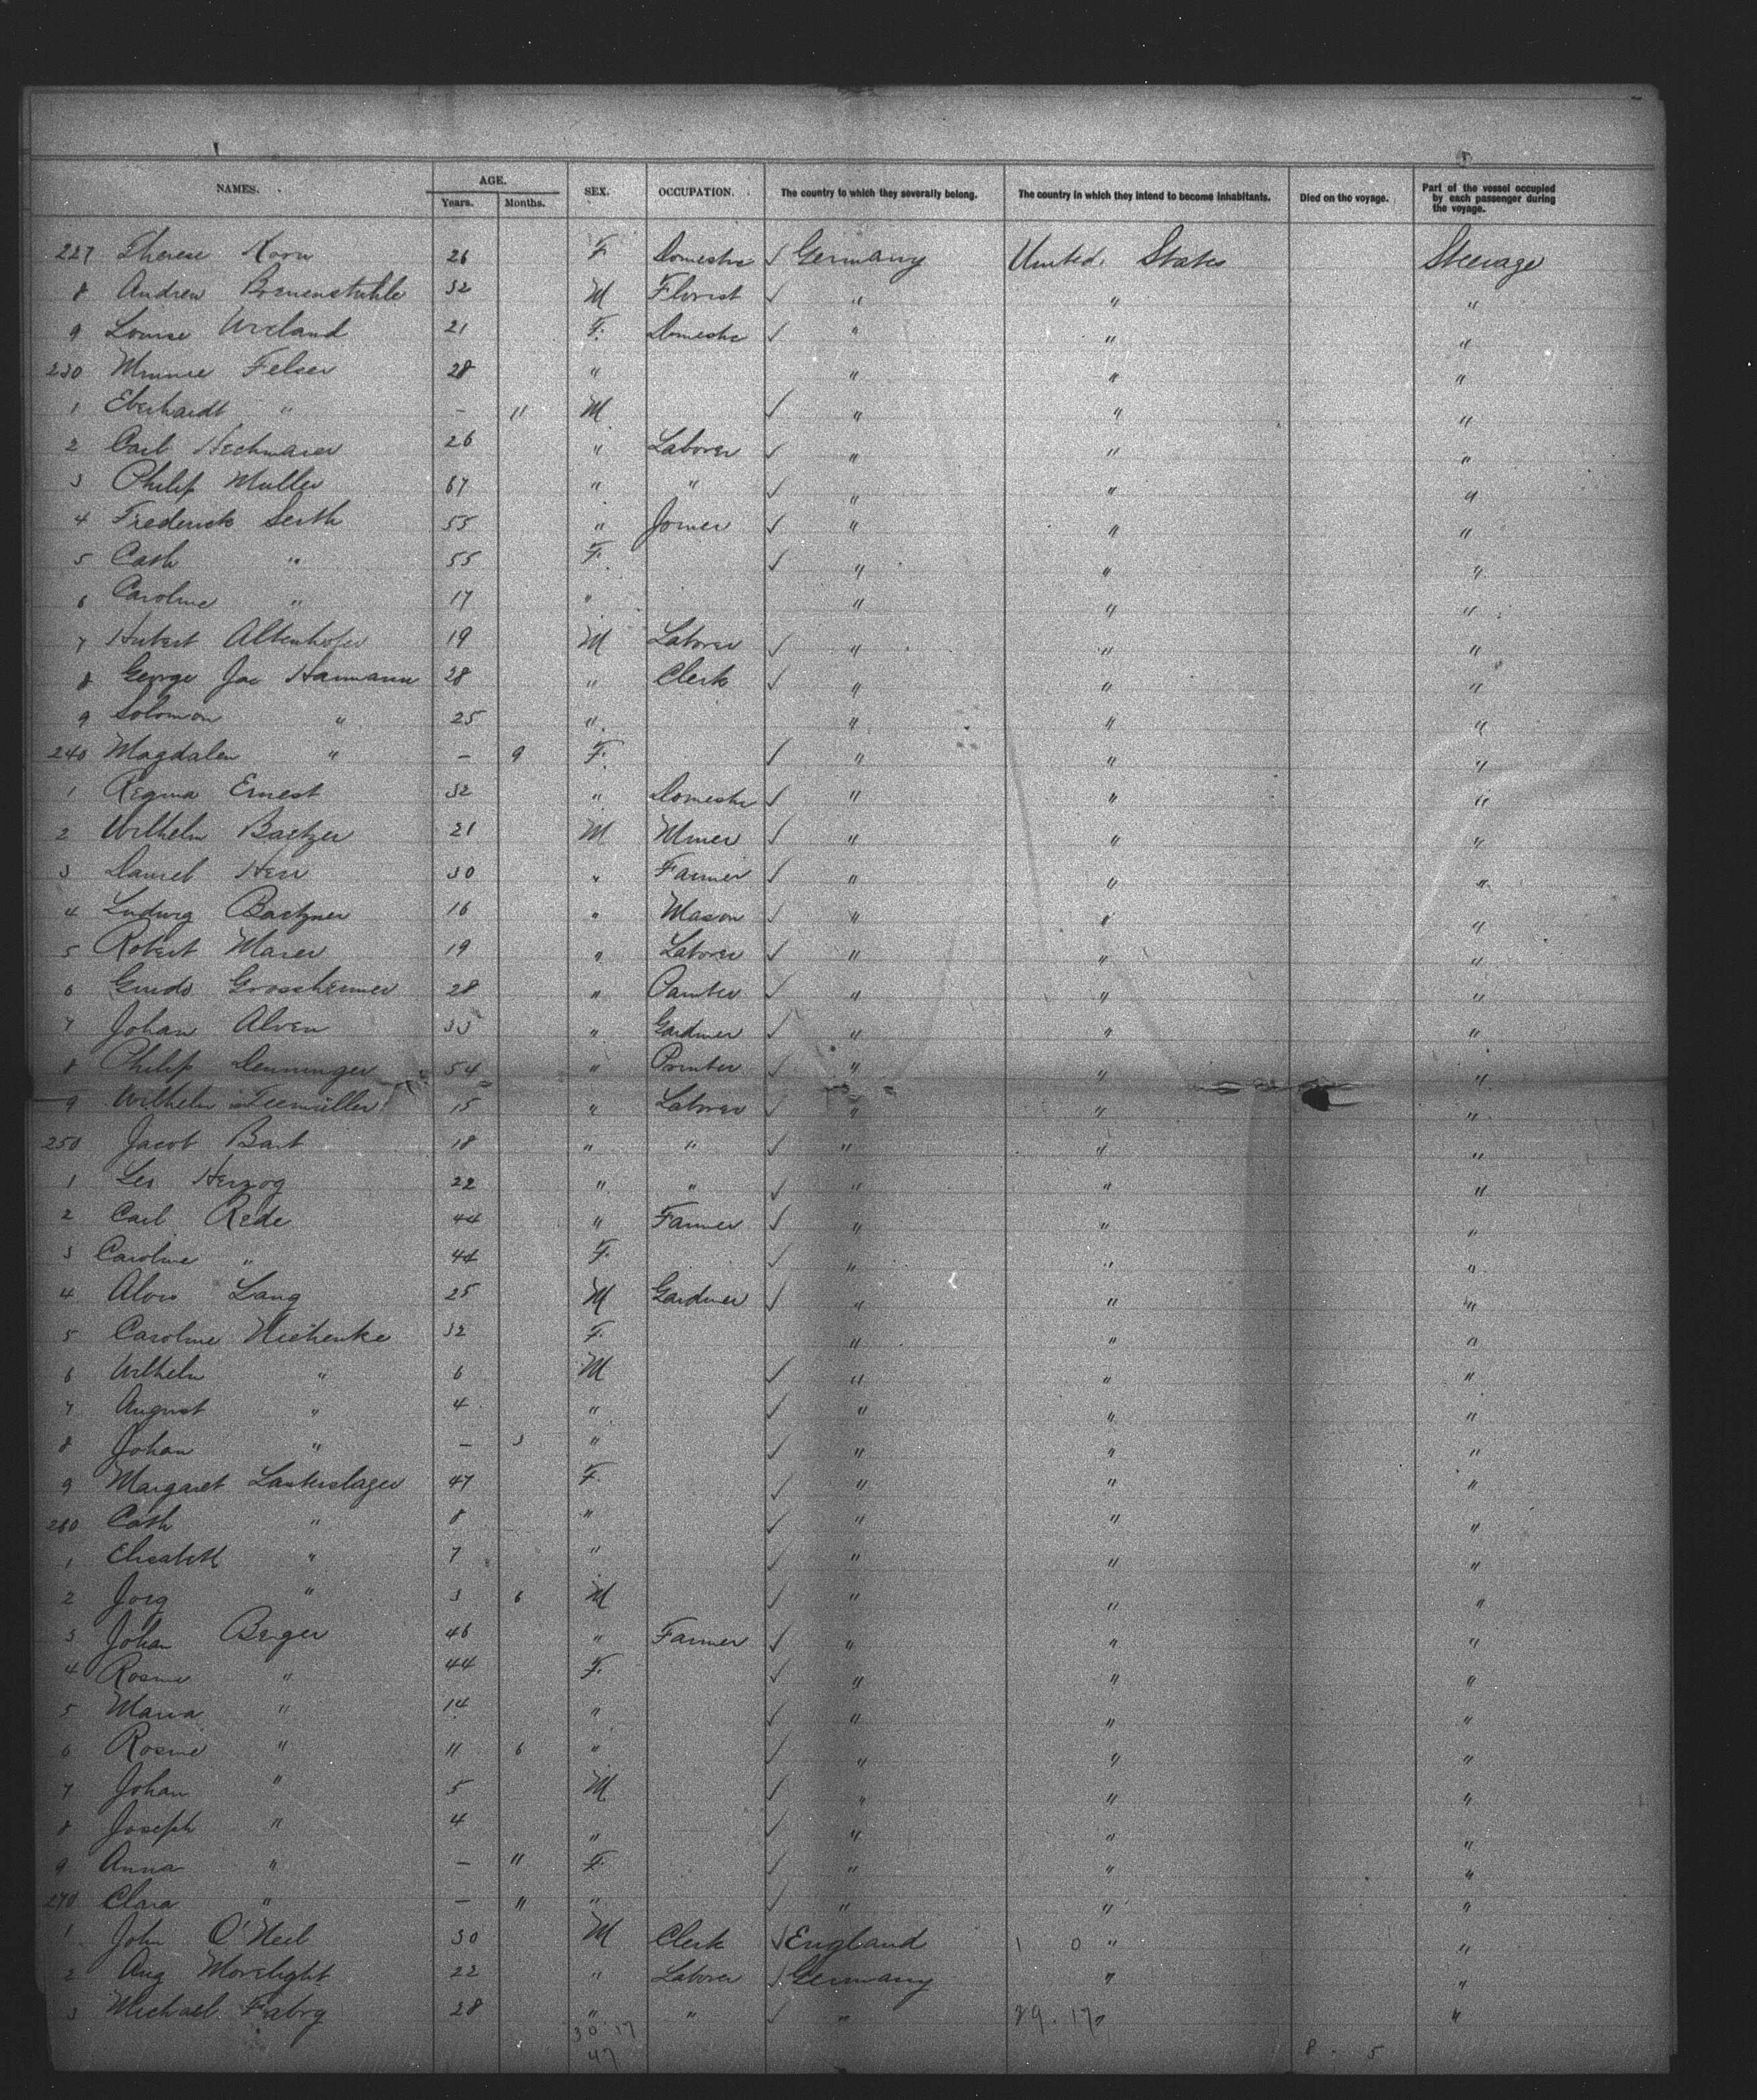 NAMES. AGE. SEX. OCCUPATION. The country to which they severally belong. The country in which they intend to become inhabitants. Died on the voyage. Part of the vessel occupied by each passenger during the voyage.
Years. Months.
227 Therese Korn 26 F. Domestic ✓ Germany United States Steerage
8 Andrew 32 M Florist ✓ " " "
9 Louise Wieland 21 F. Domestic ✓ " " "
230 Minnie Felser 28 " " " "
1 Eberhardt " - 11 M ✓ " " "
2 Carl Hechmaier 26 " Laborer ✓ " " "
3 Philip Muller 67 " " ✓ " " "
4 Frederick Serth 55 " Joiner ✓ " " "
5 Cath " 55 F. ✓ " " "
6 Caroline " 17 " " " "
7 Hubert Altenhofer 19 M Laborer ✓ " " "
8 George Jac Hamann 28 " Clerk ✓ " " "
9 Solomon " 25 " " " "
240 Magdalen " - 9 F. ✓ " " "
1 Regina Ernest 32 " Domestic ✓ " " "
2 Wilhelm Baetzer 21 M Miner ✓ " " "
3 Daniel Herr 30 " Farmer ✓ " " "
4 Ludwig 16 " Mason ✓ " " "
5 Robert Maier 19 " Laborer ✓ " " "
6 Guido Grossheimer 28 " Painter ✓ " " "
7 Johan Alven 33 " Gardiner ✓ " " "
8 Philip Denninger 54 " Printer ✓ " " "
9 Wilhelm 15 " Laborer ✓ " " "
250 Jacob Bart 18 " " ✓ " " "
1 Leo Herzog 22 " " ✓ " " "
2 Carl Rede 44 " Farmer ✓ " " "
3 Caroline " 44 F. ✓ " " "
4 Alois Lang 25 M Gardiner ✓ " " "
5 Caroline 32 F. " " "
6 Wilhelm " 6 M ✓ " " "
7 August " 4 " ✓ " " "
8 Johan " - 3 " ✓ " " "
9 Margaret Lauterslager 47 F. ✓ " " "
260 Cath " 8 " ✓ " " "
1 Elisabeth " 7 " ✓ " " "
2 Jorg " 3 6 M ✓ " " "
3 Johan Berger 46 " Farmer ✓ " " "
4 Rosine " 44 F. ✓ " " "
5 Maria " 14 " ✓ " " "
6 Rosine " 11 6 " ✓ " " "
7 Johan " 5 M ✓ " " "
8 Joseph " 4 " ✓ " " "
9 Anna " - 11 F. ✓ " " "
270 Clara " - 11 " ✓ " " "
1 John O'Neil 30 M Clerk ✓ England 1 0 " "
2 Aug Morslight 22 " Laborer ✓ Germany " "
3 Michael Fabry 28 " " ✓ " 29. 17 " "
30 17
47 8 - 5